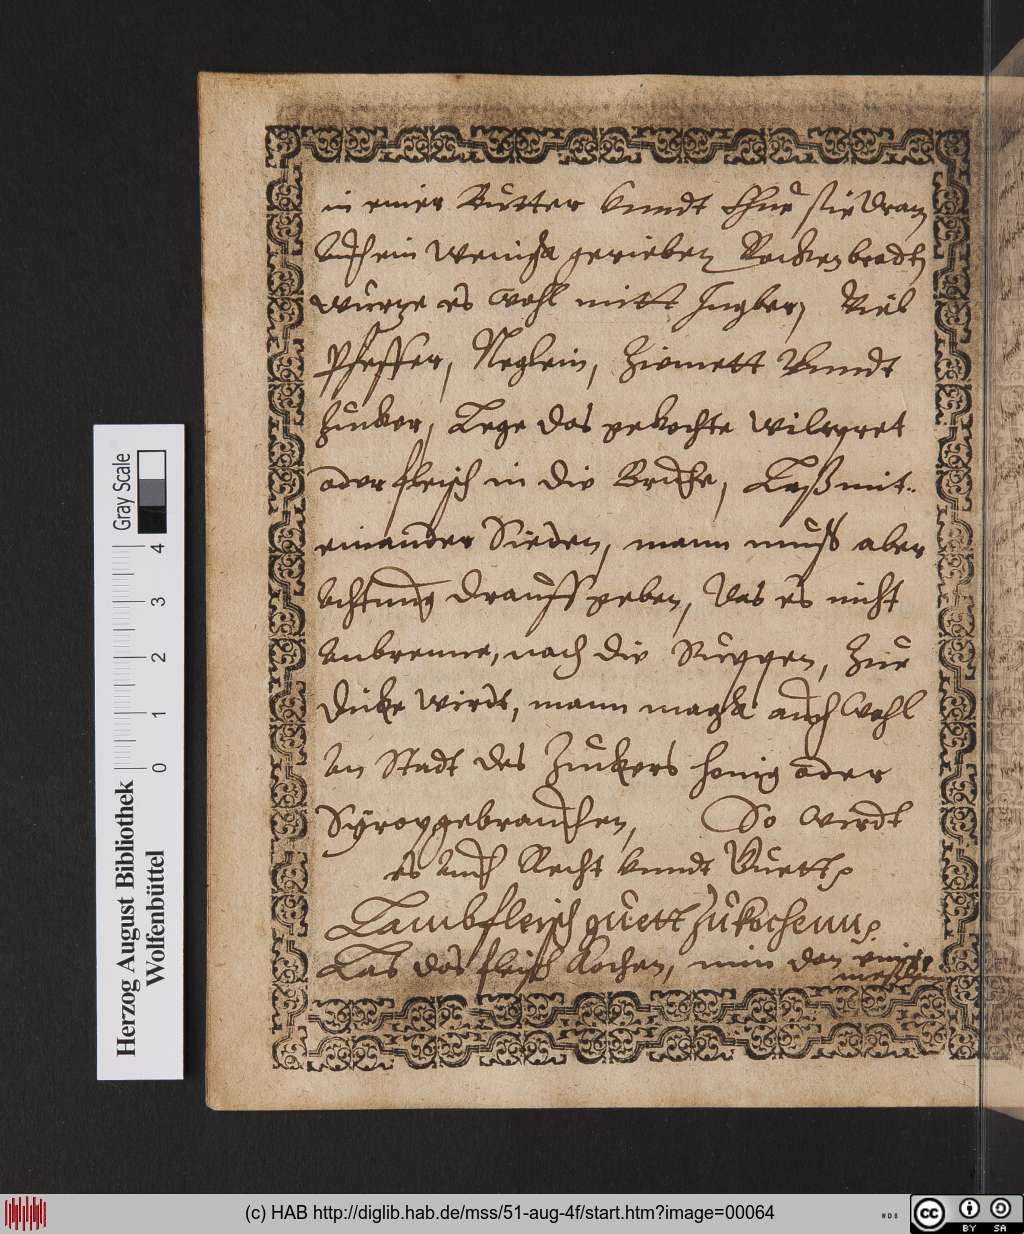 in einer Butter Vnndt thue sie dran
Auch ein weinigk gerieben Rocken brodtt
würtze es wohl mitt Ingber, Viel
Pfeffer, Neglein, Zimmett Vnndt
Zuuker, Lege das gekochte wilpret
oder fleisch in die Brühe, Laß mit
einander Sieden, mann muß aber
Achtung drauff geben, das es nicht
Anbrenne, nach die Suppen, Zue
dicke wirdt, mann magk auch wohl
An Stadt des Zuckers honig oder
Syrop gebrauchen, So wirdt
es Auch Recht Vnndt Guett
Lambfleisch guett zukochenn
Las das fleisch Kochen, nim den
Gray Scale
0 1 2 3 4
Herzog August Bibliothek
Wolfenbüttel
(c) HAB http://diglib.hab.de/mss/51-aug-4f/start.htm?image=00064
WDB
cc
BY SA